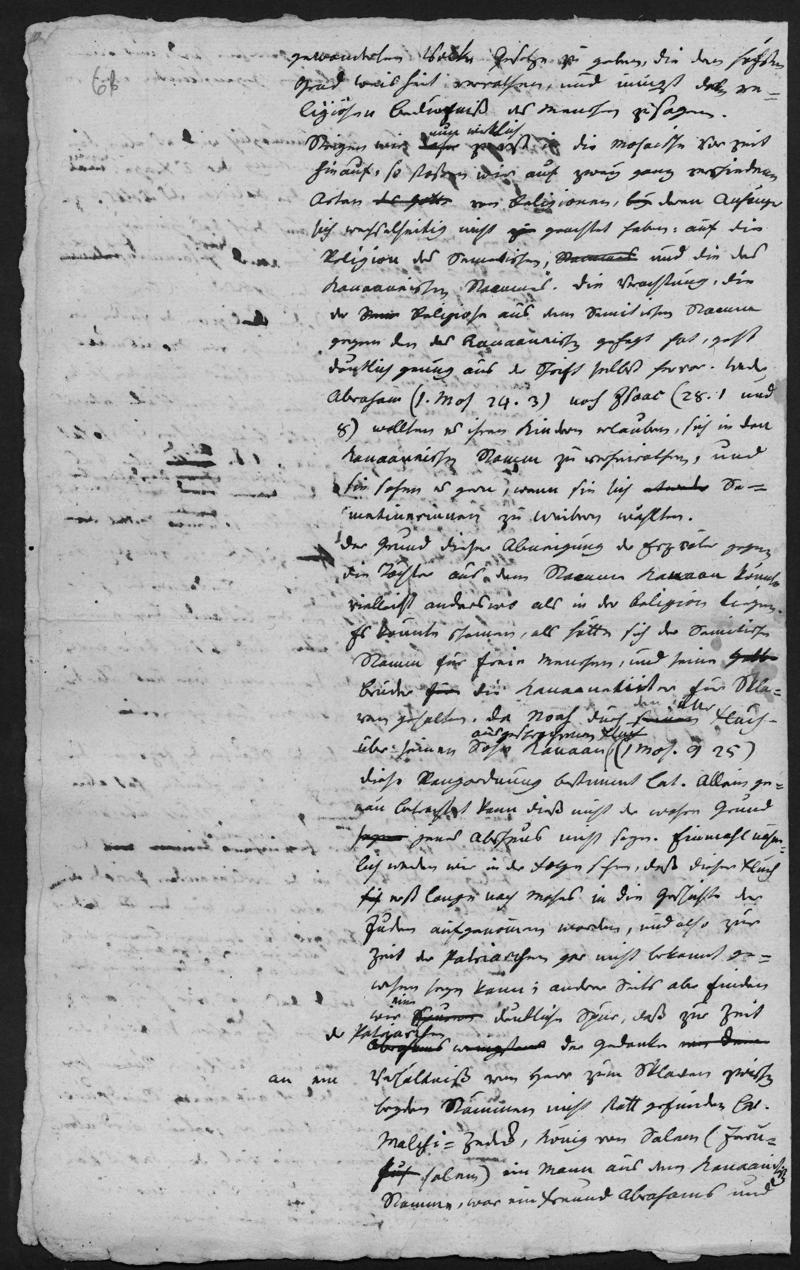 68
gewanderten Volke Gesetze zu geben, die den höchsten
Grad weisheit verrathen, und innigst dem re=
ligiösen bedürfniß des Menschen zusagen.
Steigen wir nun wirklich zuerst in die Mosaische Vorzeit
hinauf, so stoßen wir auf zwey ganz verschiedene
Arten von Religionen, deren Anhänger
sich wechselseitig nicht geachtet haben: auf die
Religion des Semitischen, Stammes und die des
Kanaanitischen Stammes. Die Verachtung, die
der Religiose aus dem Semitischen Stamme
gegen den des Kanaanitischen gehegt hat, geht
deutlich genug aus der Schrift selbst hervor. Weder
Abraham (1. Mos 24. 3) noch Isaac (28. 1 und
8) wollten es ihren Kindern erlauben, sich in den
Kanaanitischen Stamm zu verheirathen, und
sie sahen es gern, wenn sie sich Se=
mitinerinnen zu Weibern wählten.
Der Grund dieser Abneigung der Erzväter gegen
die Töchter aus dem Stamme Kanaan könnte
vielleicht anderswo als in der Religion liegen.
Es könnte scheinen, als hätte sich der Semitische
Stamm für freie Menschen, und seine
Brüder für die Kanaaniter für Skla=
ven gehalten, da Noah durch den über
ausgesprochenen Fluch
über seinen Sohn Kanaan (1 Mos. 9 25)
diese Rangordnung bestimmt hat. Allein ge=
nau betrachtet kann dieß nicht der wahre Grund
jenes Abscheus nicht seyn. Einmahl nähm=
lich werden wir in der Folge sehen, daß dieser Fluch
erst lange nach Moses in die Geschichte der
Juden aufgenommen worden, und also zur
Zeit der Patriarchen gar nicht bekannt ge=
wesen seyn kann; anderer Seits aber finden
wir eine deutliche Spur, daß zur Zeit
der Patriarchen
Abrahams wenigstens der Gedanke
an ein Verhältniß von Herr zum Sklaven zwischen
beyden Stämmen nicht statt gefunden hat.
Malchi=Zedek, König von Salem (Jeru=
salem) ein Mann aus dem Kanaanitischen
Stamme, war ein Freund Abrahams und